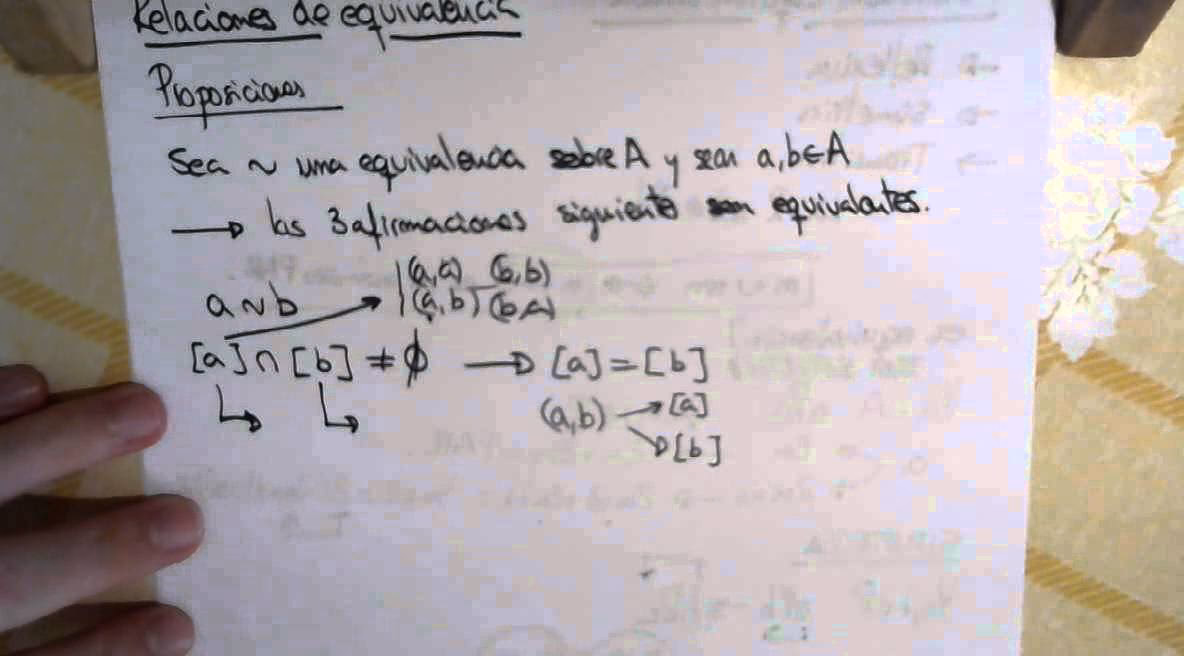 Relaciones de equivalencia
Proposiciones
Sea ~ una equivalencia sobre A y sean a,b∈A
→ las 3 afirmaciones siguiente son equivalentes.
a~b → (a,a) (b,b)
(a,b) (b,a)
[a]∩[b] ≠ ∅ → [a]=[b]
(a,b) → [a]
→ [b]